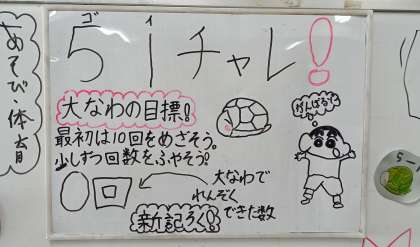 あそび・体育
ゴ イ
51チャレ!
大なわの目標!
がんばるぞ
最初は10回をめざそう。
少しずつ回数をふやそう!
大なわで
れんぞく
できた数
新記ろく!